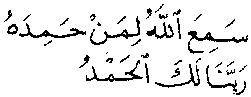 سَمِعَ ٱللَّهُ لِمَنْ حَمِدَهُ
رَبَّنَا لَكَ ٱلْحَمْدُ